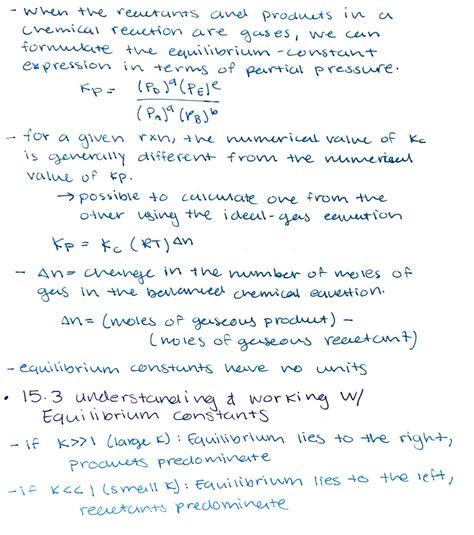 - when the reactants and products in a
chemical reaction are gases, we can
formulate the equilibrium-constant
expression in terms of partial pressure.
Kp = (PD)^d (PE)^e / (PA)^a (PB)^b
- for a given rxn, the numerical value of Kc
is generally different from the numerical
value of Kp.
→ possible to calculate one from the
other using the ideal-gas equation
Kp = Kc (RT)^Δn
- Δn = change in the number of moles of
gas in the balanced chemical equation.
Δn = (moles of gaseous product) -
(moles of gaseous reactant)
- equilibrium constants have no units
• 15.3 understanding & working w/
Equilibrium constants
- if K>>1 (large K): Equilibrium lies to the right,
products predominate
- if K<<1 (small K): Equilibrium lies to the left,
reactants predominate